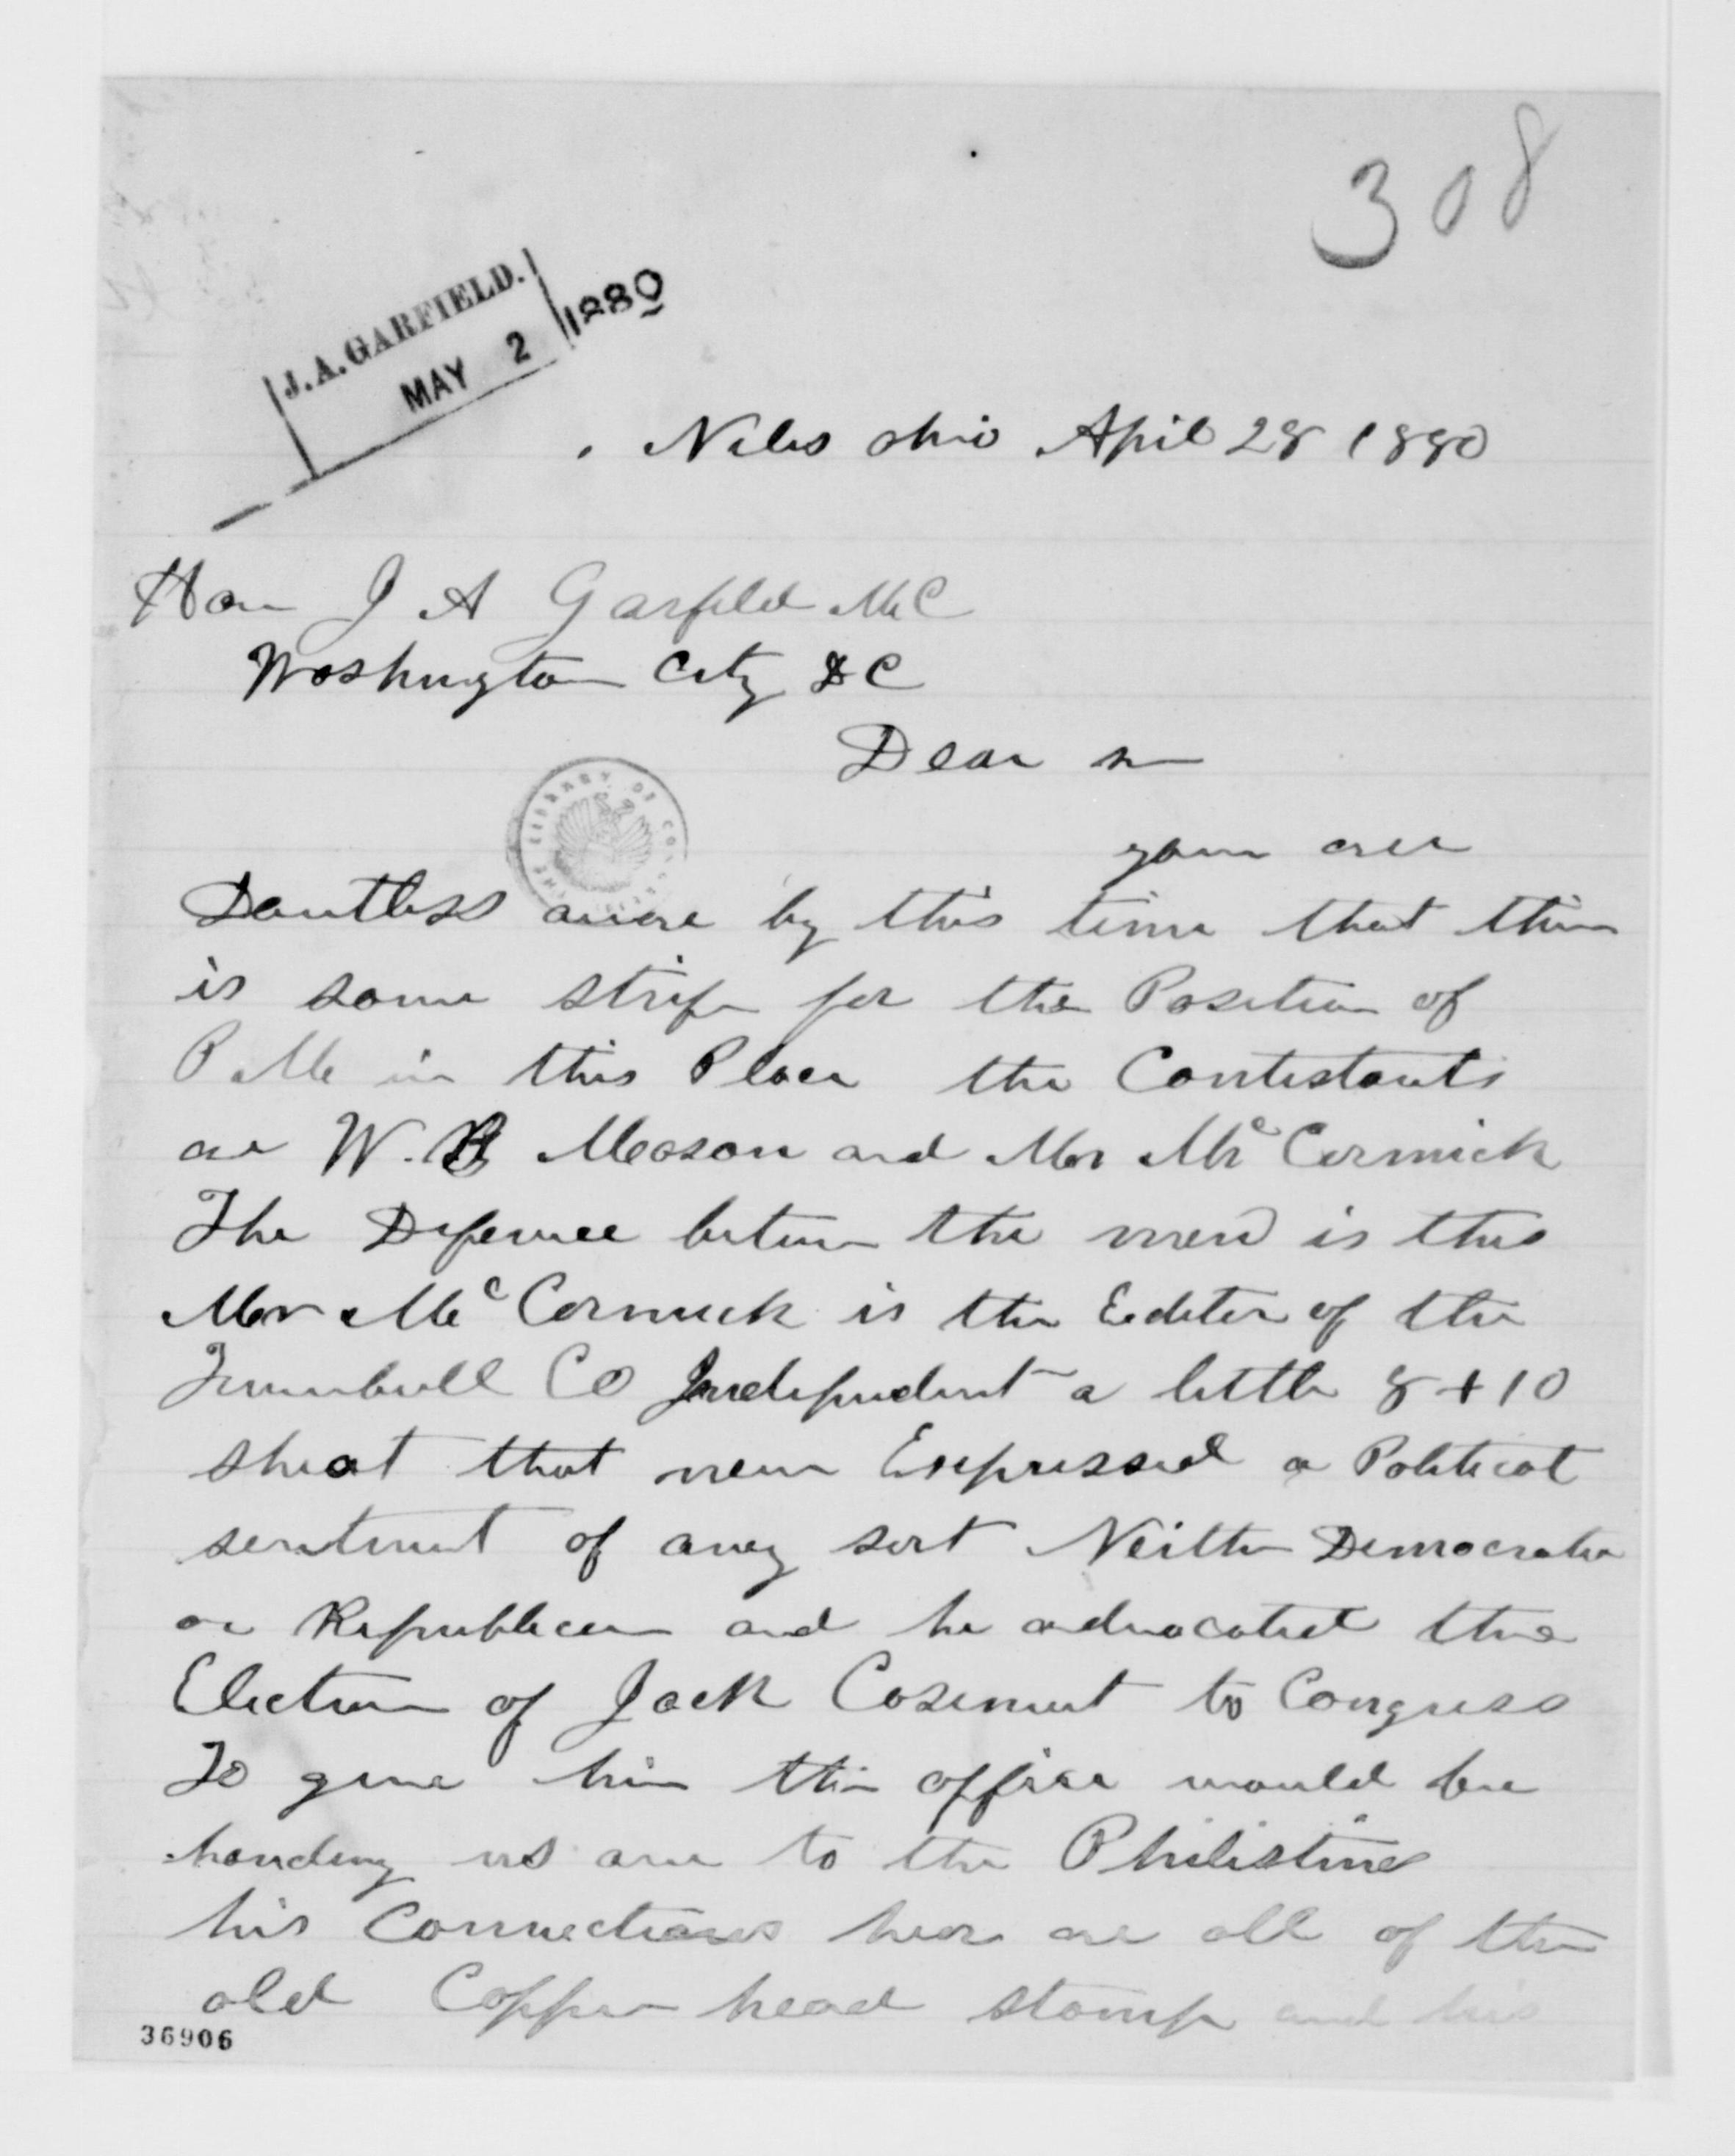 308
J. A. GARFIELD.
MAY 2 1880
Niles Ohio April 28 1880
Hon J A Garfield MC
Washington City DC
Dear sir
THE LIBRARY OF CONGRESS
your are
Dautless aware by this time that thire
is some strife for the Position of
P M in this Place the Contestants
are W. B Meason and Mr Mc Cormick
The Diference between the men is this
Mr Mc Cormick is the Editer of the
Trumbull Co Independent a little 8 + 10
sheat that never Expressed a Political
sentiment of any sort Neither Democratic
or Republican and he advocated the
Election of Jack Casement to Congress
To give him this office would be
handing us over to the Philistines
his Connections hear are all of the
old Copper head stamp and his
36906